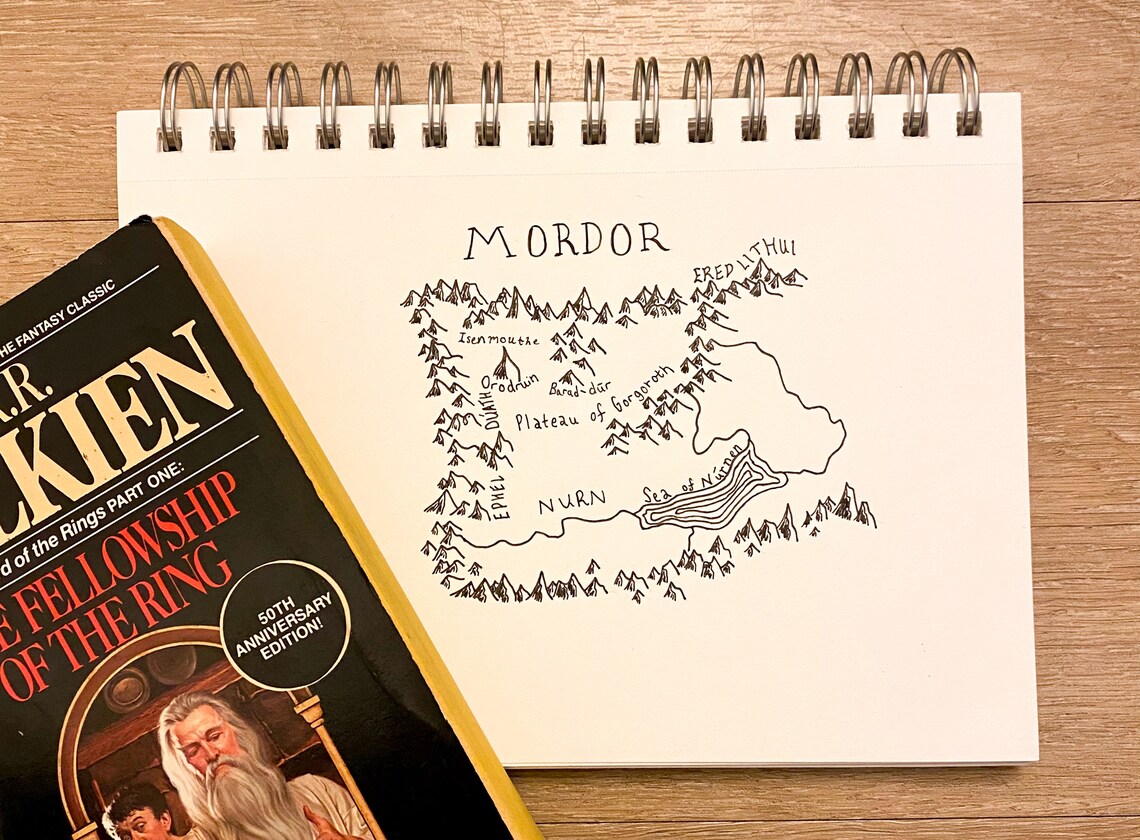 MORDOR
ERED LITHUI
Isenmouthe
Orodruin
Barad-dûr
Plateau of Gorgoroth
EPHEL DÚATH
NURN
Sea of Núrnen
THE FANTASY CLASSIC
.R.
KIEN
of the Rings PART ONE:
FELLOWSHIP
OF THE RING
50TH
ANNIVERSARY
EDITION!